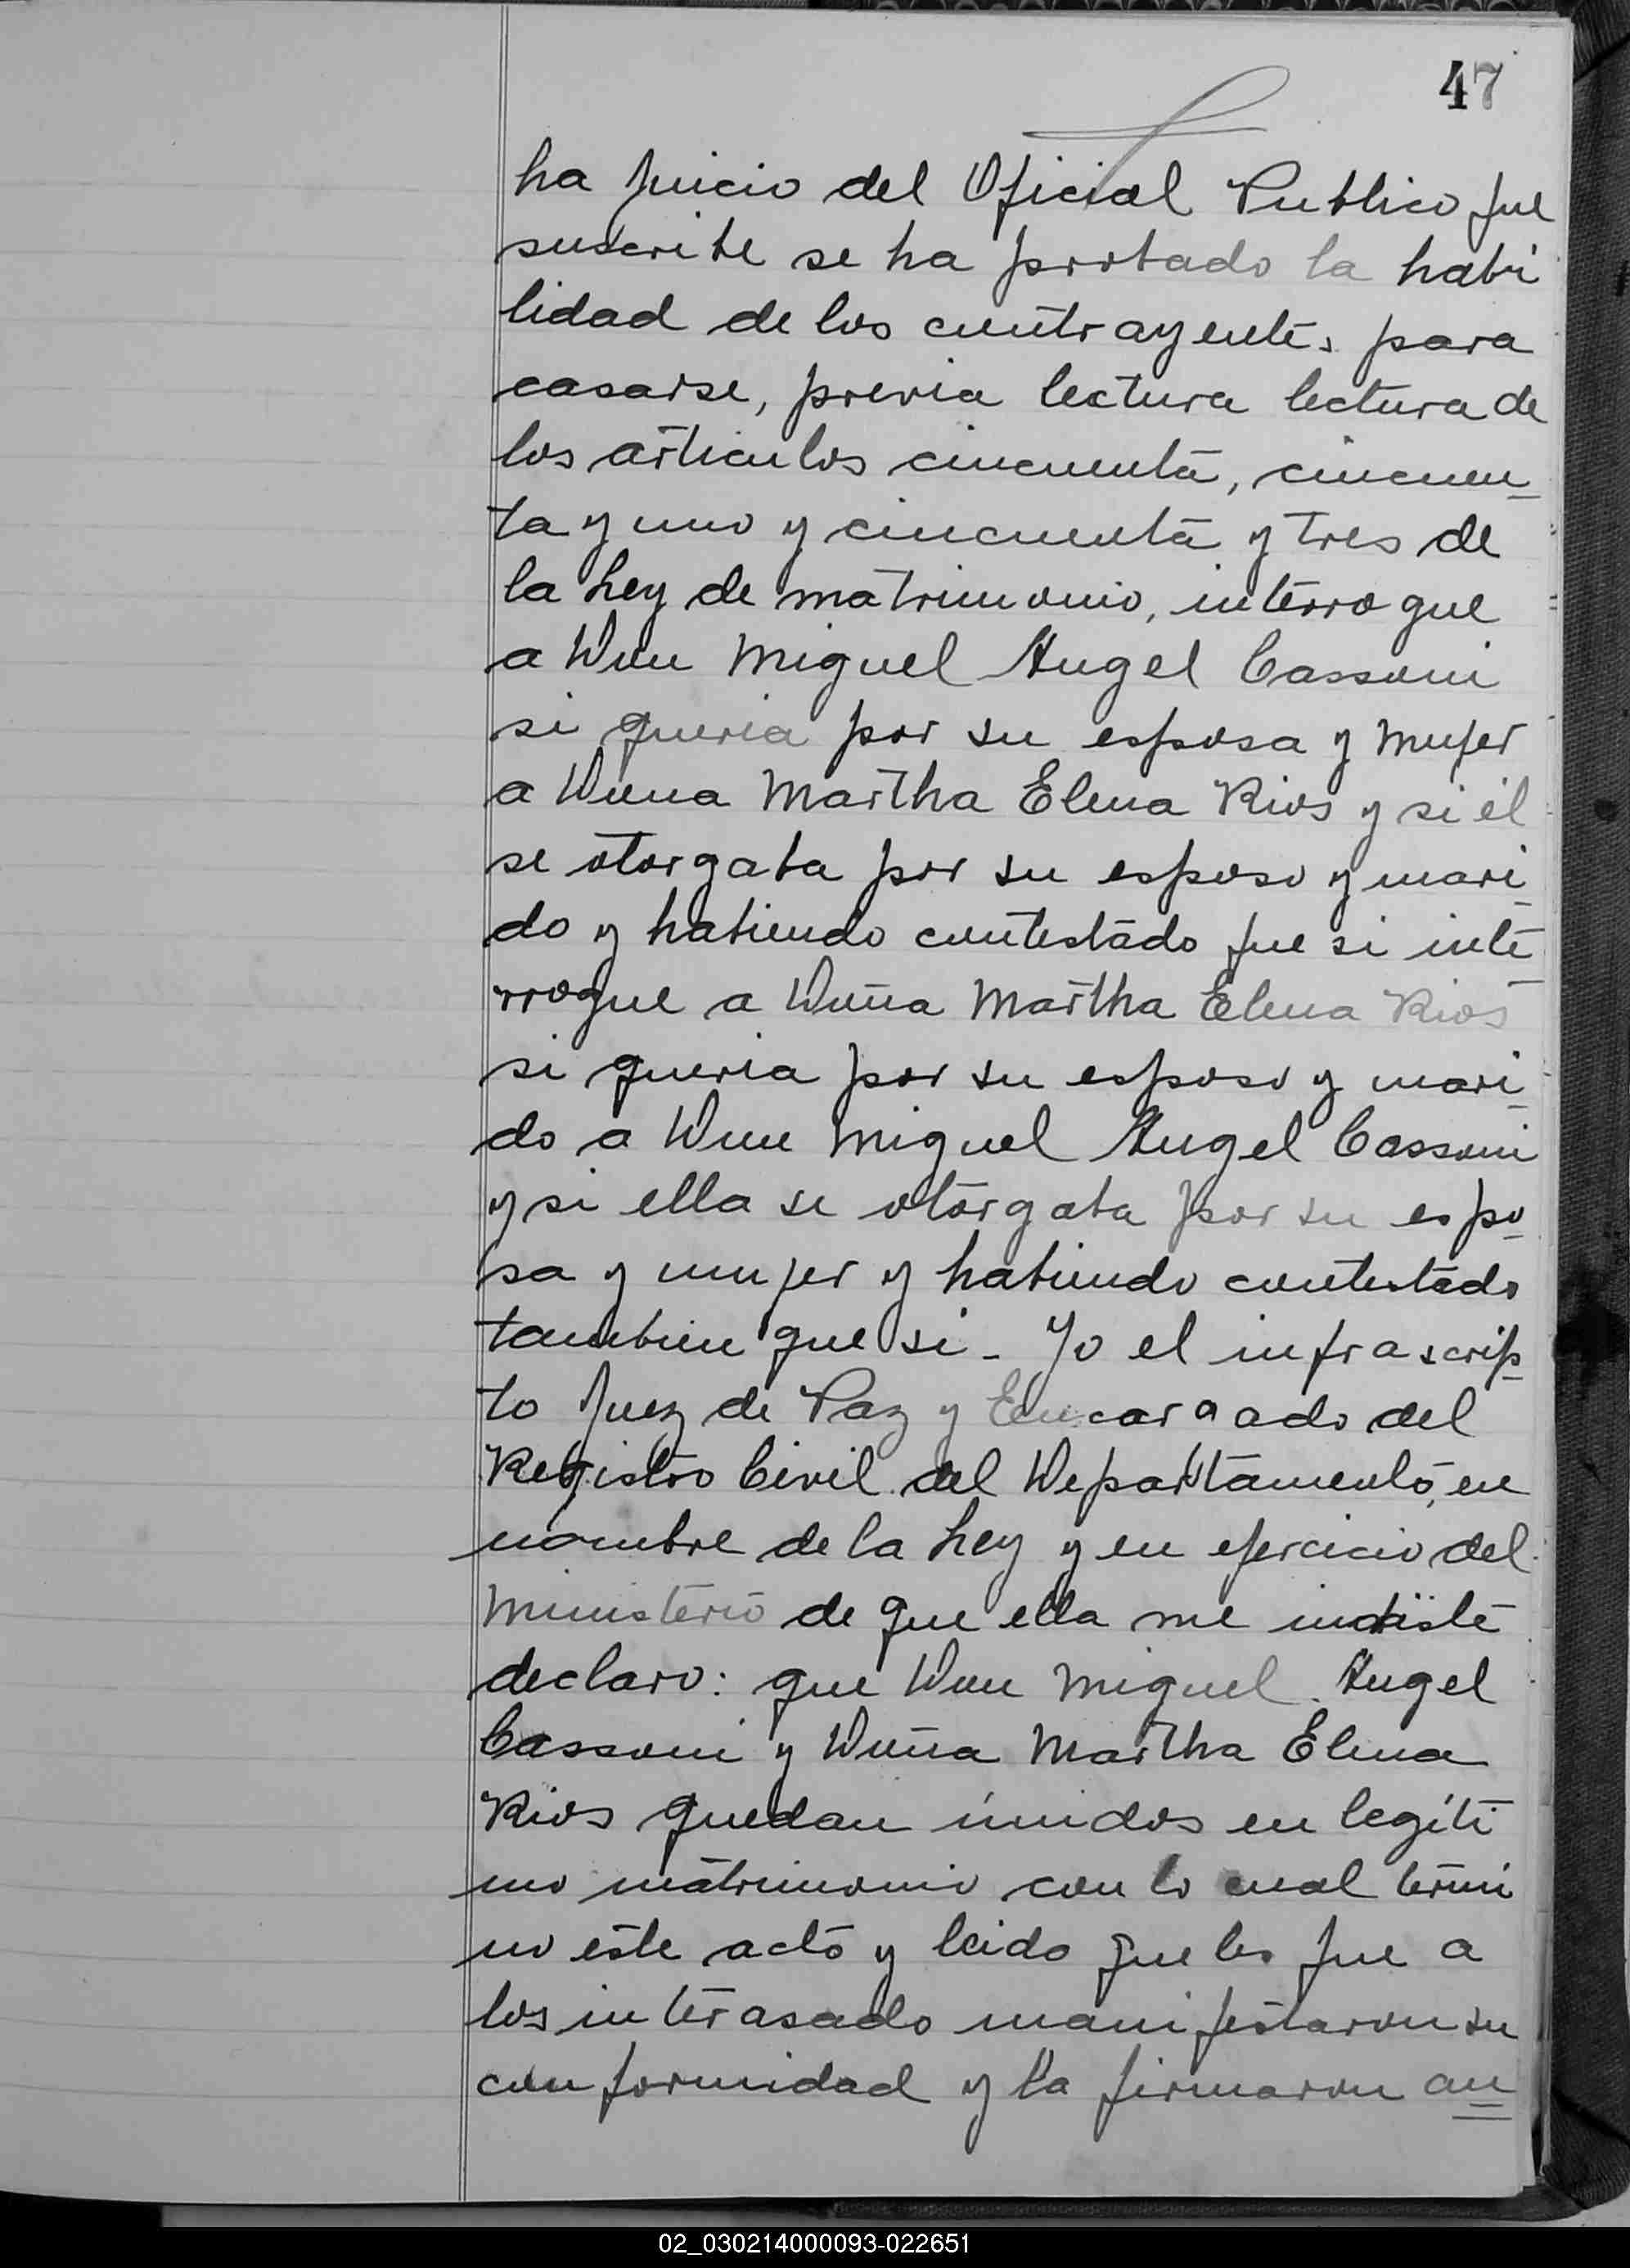 47
ha juicio del Oficial Publico que
suscribe se ha probado la habi
lidad de los contrayentes para
casarse, previa lectura lectura de
los articulos cincuenta, cincuen-
ta y uno y cincuenta y tres de
la Ley de matrimonio, interrogue
a Don Miguel Angel Cassoni
si queria por su esposa y mujer
a Dona Martha Elena Rios y si él
se otorgaba por su esposo y mari-
do y habiendo contestado que si inte
rrogue a Doña Martha Elena Rios
si queria por su esposo y mari-
do a Don Miguel Angel Cassoni
y si ella se otorgaba por su espo-
sa y mujer y habiendo contestado
tambien que si - Yo el infrascrip-
to Juez de Paz y Encargado del
Registro Civil del Departamento, en
nombre de la Ley y en ejercicio del
ministerio de que ella me indiste
declaro: que Don Miguel Angel
Cassoni y Doña Martha Elena
Rios quedan únidos en legiti
mo matrimonio con lo cual termi
no este acto y leido que les fue a
los interasado manifestaron su
conformidad y la firmaron an=
02_030214000093-022651